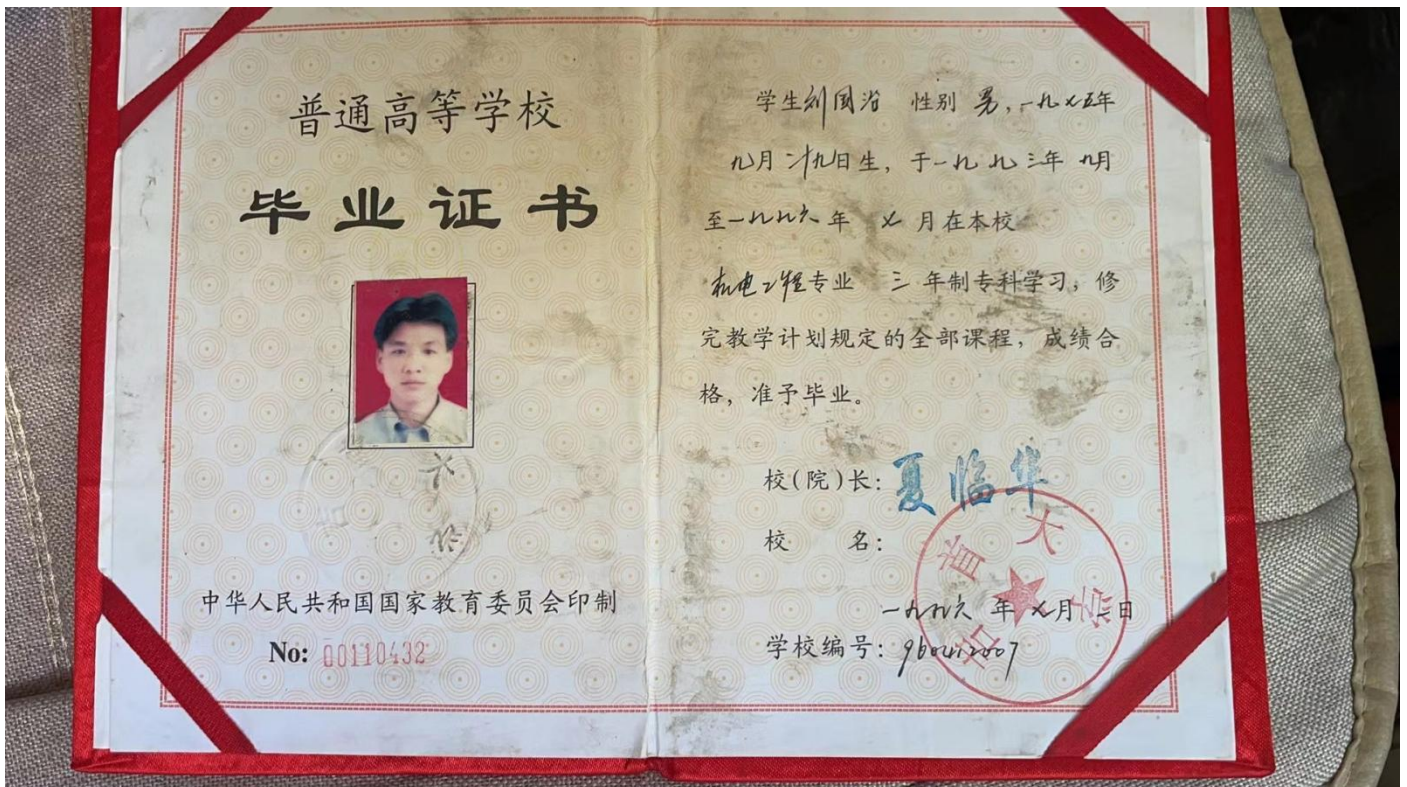 普通高等学校
毕业证书
中华人民共和国国家教育委员会印制
No: 00110432
学生刘国治 性别 男,一九七五年
九月二十九日生, 于一九九三年 九月
至一九九六年 七月在本校
机电工程专业 三 年制专科学习, 修
完教学计划规定的全部课程, 成绩合
格, 准予毕业。
校(院)长: 夏临华
校 名:
吉首大学
一九九六 年 七月 一日
学校编号: